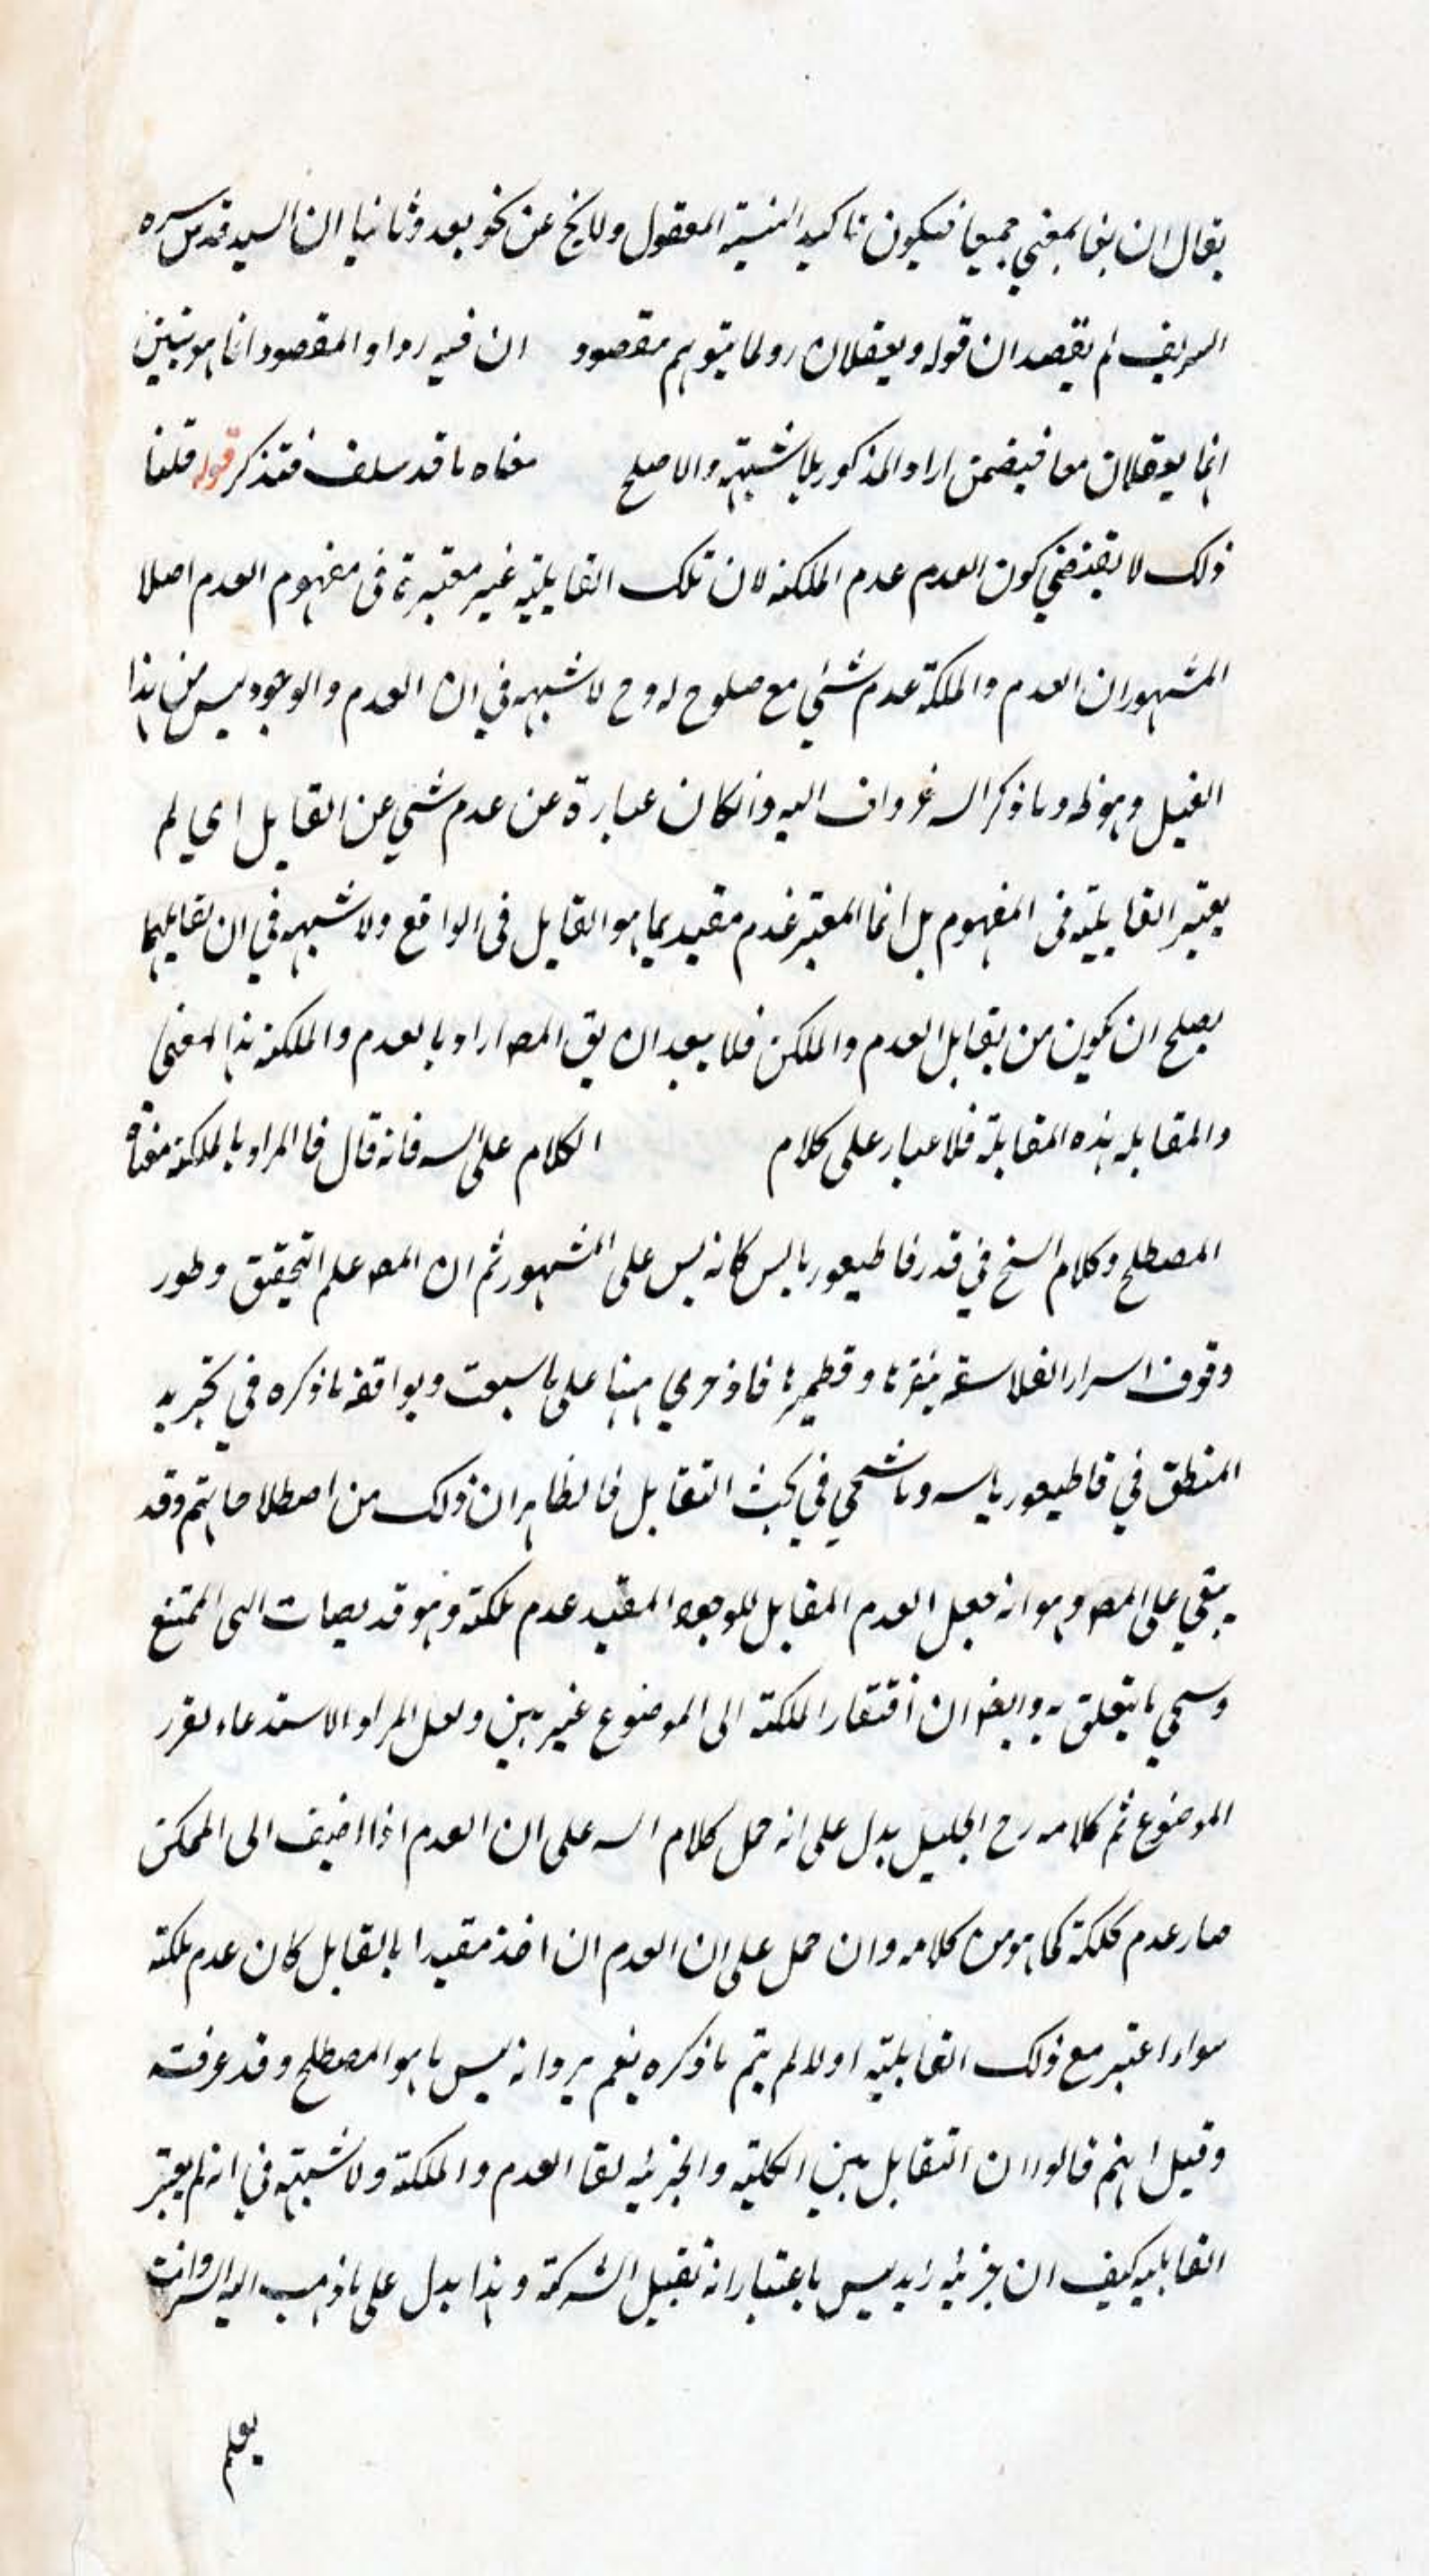 يقال ان بقا بمعني جميعا فيكون تاكيد المعقول ولا يخ عن نحو بعد وثانيا ان السيد قدس سره
الشريف لم يقصد ان قوله ويعقلان رد لما يتوهم مقصود ان فيه رد او المقصود انما هو تبين
انما يعقلان معا فيضمن اراد المذكور بلا شبهته والاصلح معناه ما قد سلف فتذكر قوله قلنا
ذلك لا يقتضي كون العدم عدم الملكة لان تلك القابلية غير معتبرة في مفهوم العدم اصلا
المشهور ان العدم والملكة عدم شئي مع صلوح له وح لا شبهه في ان العدم والوجود ليس من هذا
القبيل وهو وما ذكر اليه وانكان عبارة عن عدم شئي عن القابل اي لم
يعتبر القابلية في المفهوم بل انما المعتبر عدم مقيد بما هو القابل في الواقع ولا شبهه في ان تقابلهما
يصلح ان يكون من تقابل العدم والملكة فلا يبعد ان يق المصـ اراد بالعدم والملكة هذا المعني
والمقابله هذه المقابلة فلا غبار على كلام الكلام على فانه قال فالمراد بالملكة معناه
المصطلح وكلام الشيخ في قاطيغورياس كانه ليس على المشهور ثم ان المصـ علم التحقيق وطور
وقوف اسرار الفلاسفة وقطميرها ههنا على ما سبقت ويوافقه ما ذكره في تجريد
المنطق في قاطيغورياس وما سيجي في بحث التقابل فالظاهر ان ذلك من اصطلاحاتهم وقد
بقي على المصـ وهو انه جعل العدم المقابل للوجود المقيد عدم ملكة وهو قد يضاف الى الممتنع
وسيجي ما يتعلق به وايضا ان افتقار الملكة الى الموضوع غير بين ولعل المراد الاستدعاء لقرر
الموضوع ثم كلامه رح الجليل يدل على انه حمل كلام السـ على ان العدم اذا اضيف الى الممكن
صار عدم ملكة كما هو من كلامه وان حمل على ان العدم ان اخذ مقيدا بالقابل كان عدم ملكة
سواء اعتبر مع ذلك القابلية او لا لم يتم ما ذكره نعم يرد انه ليس ما هو المصطلح وقد عرفته
وقيل انهم قالوا ان التقابل بين الكلية والجزئيه تقا العدم والملكة ولا شبهته في انه لم يعتبر
القابليه كيف ان جزئيه زيد ليس باعتبار انه تقبل الشركة وهذا يدل على ما ذهب اليه وانت
يعلم